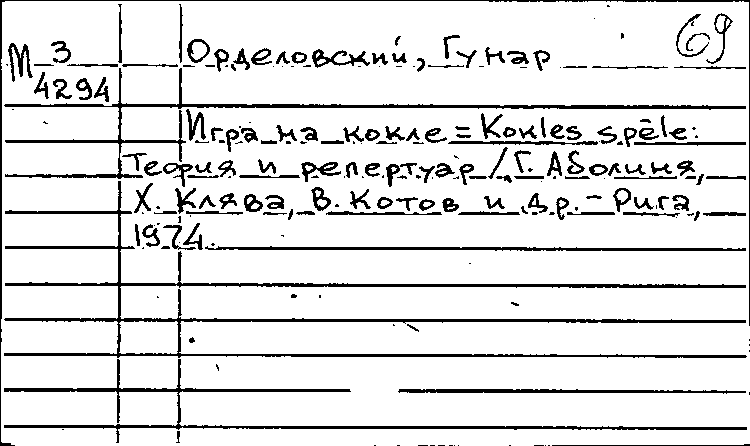 69
М 3 Орделовский, Гунар
4294
Игра на кокле = Kokles spēle:
Теория и репертуар / Г. Аболиня,
Х. Клява, В. Котов и др. - Рига,
1974.